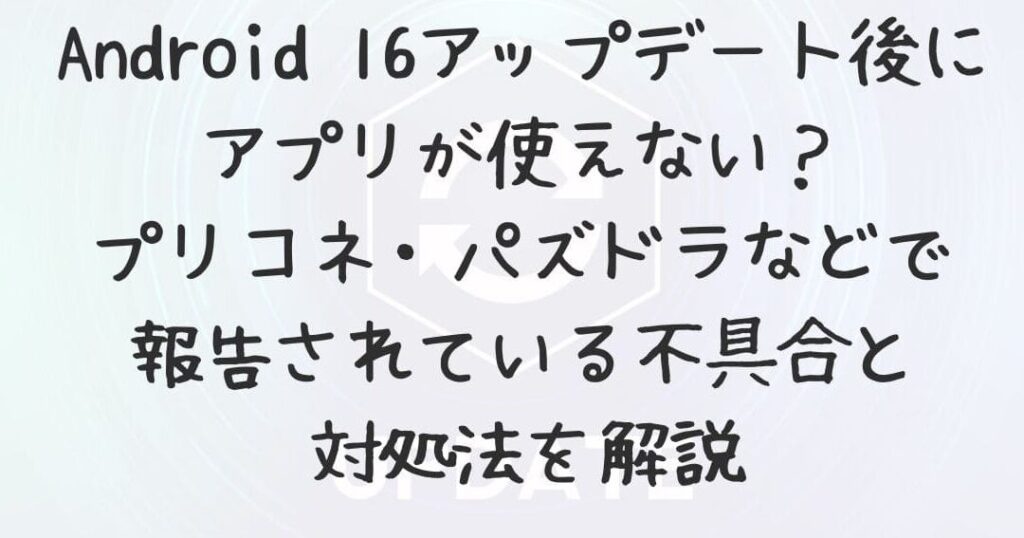 Android 16アップデート後に
アプリが使えない？
プリコネ・パズドラなどで
報告されている不具合と
対処法を解説
UPDATE